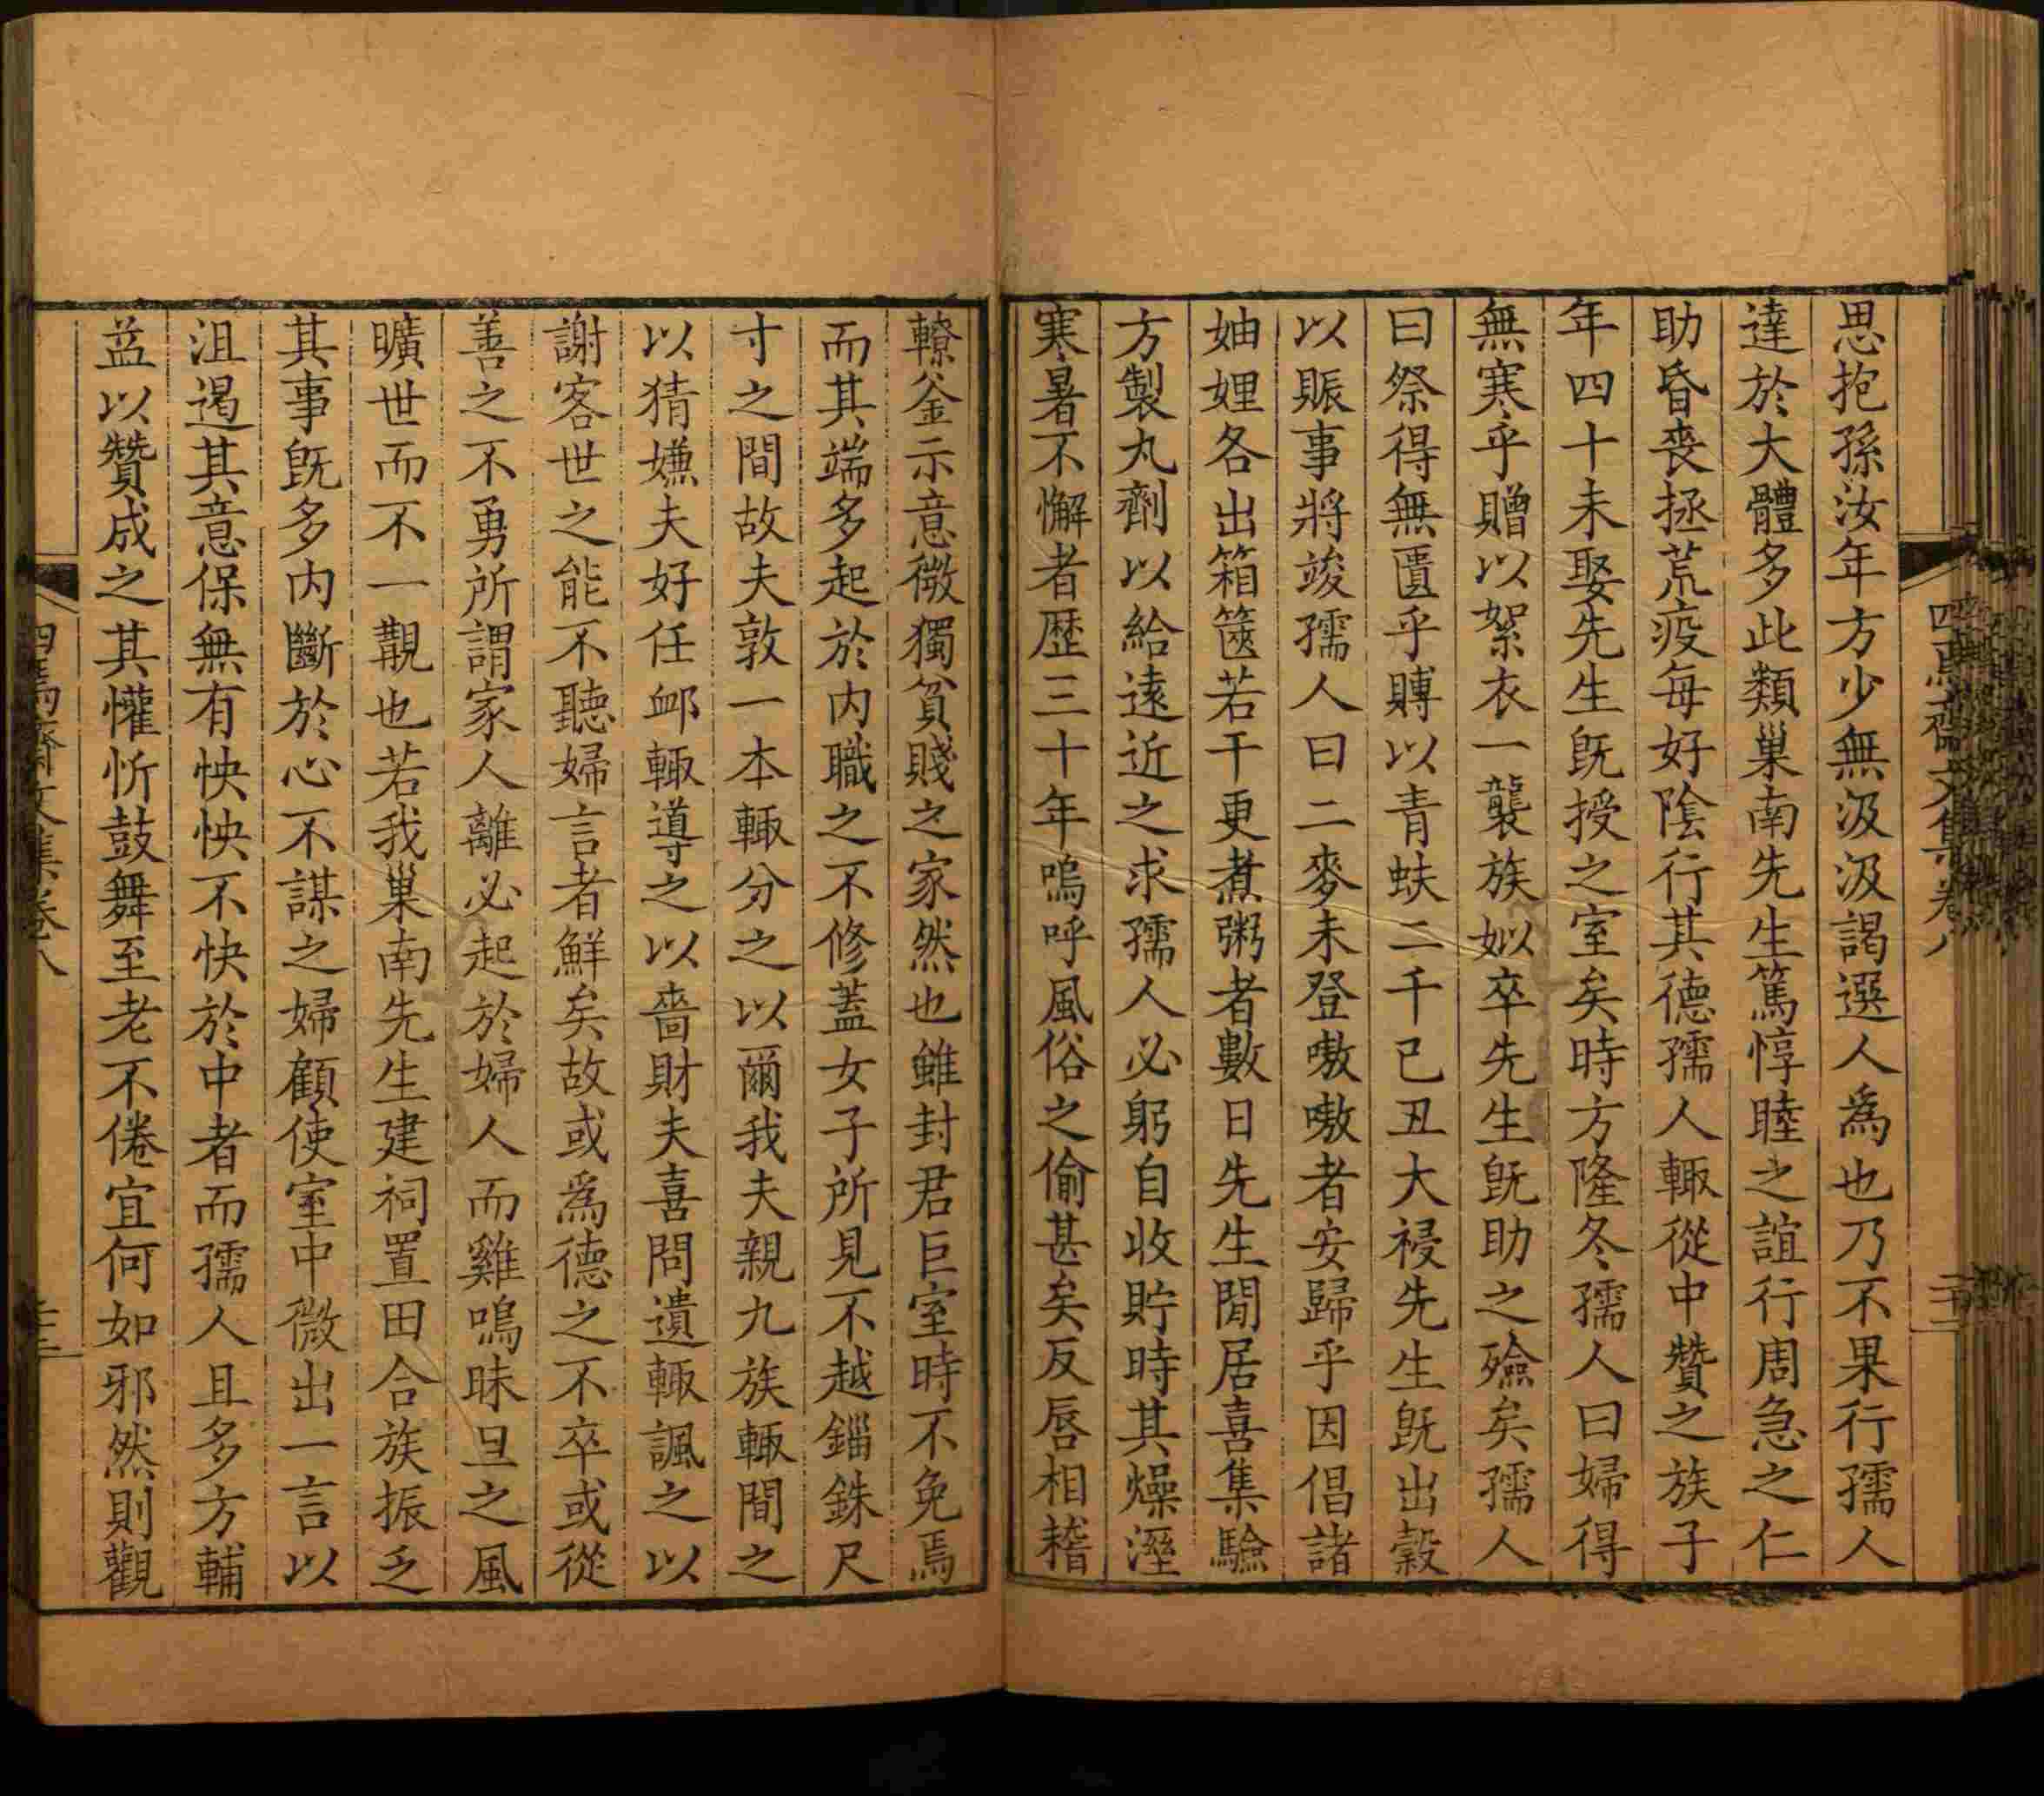 思抱孫汝年方少無汲汲謁選人為也乃不果行孺人
達於大體多此類巢南先生篤惇睦之誼行周急之仁
助昏喪拯荒疫每好陰行其德孺人輒從中贊之族子
年四十未娶先生旣授之室矣時方隆冬孺人曰婦得
無寒乎贈以絮衣一襲族姒卒先生旣助之殮矣孺人
曰祭得無匱乎賻以青蚨二千己丑大祲先生旣出穀
以賑事將竣孺人曰二麥未登嗷嗷者安歸乎因倡諸
妯娌各出箱篋若干更煮粥者數日先生閒居喜集驗
方製丸劑以給遠近之求孺人必躬自收貯時其燥溼
寒暑不懈者歷三十年嗚呼風俗之偷甚矣反唇相稽
轑釜示意微獨貧賤之家然也雖封君巨室時不免焉
而其端多起於內職之不修蓋女子所見不越錙銖尺
寸之間故夫敦一本輒分之以爾我夫親九族輒間之
以猜嫌夫好任卹輒導之以嗇財夫喜問遺輒諷之以
謝客世之能不聽婦言者鮮矣故或為德之不卒或從
善之不勇所謂家人離必起於婦人而雞鳴昧旦之風
曠世而不一覯也若我巢南先生建祠置田合族振乏
其事旣多內斷於心不謀之婦顧使室中微出一言以
沮遏其意保無有怏怏不快於中者而孺人且多方輔
益以贊成之其懽忻鼓舞至老不倦宜何如邪然則觀
四焉齋文集卷八